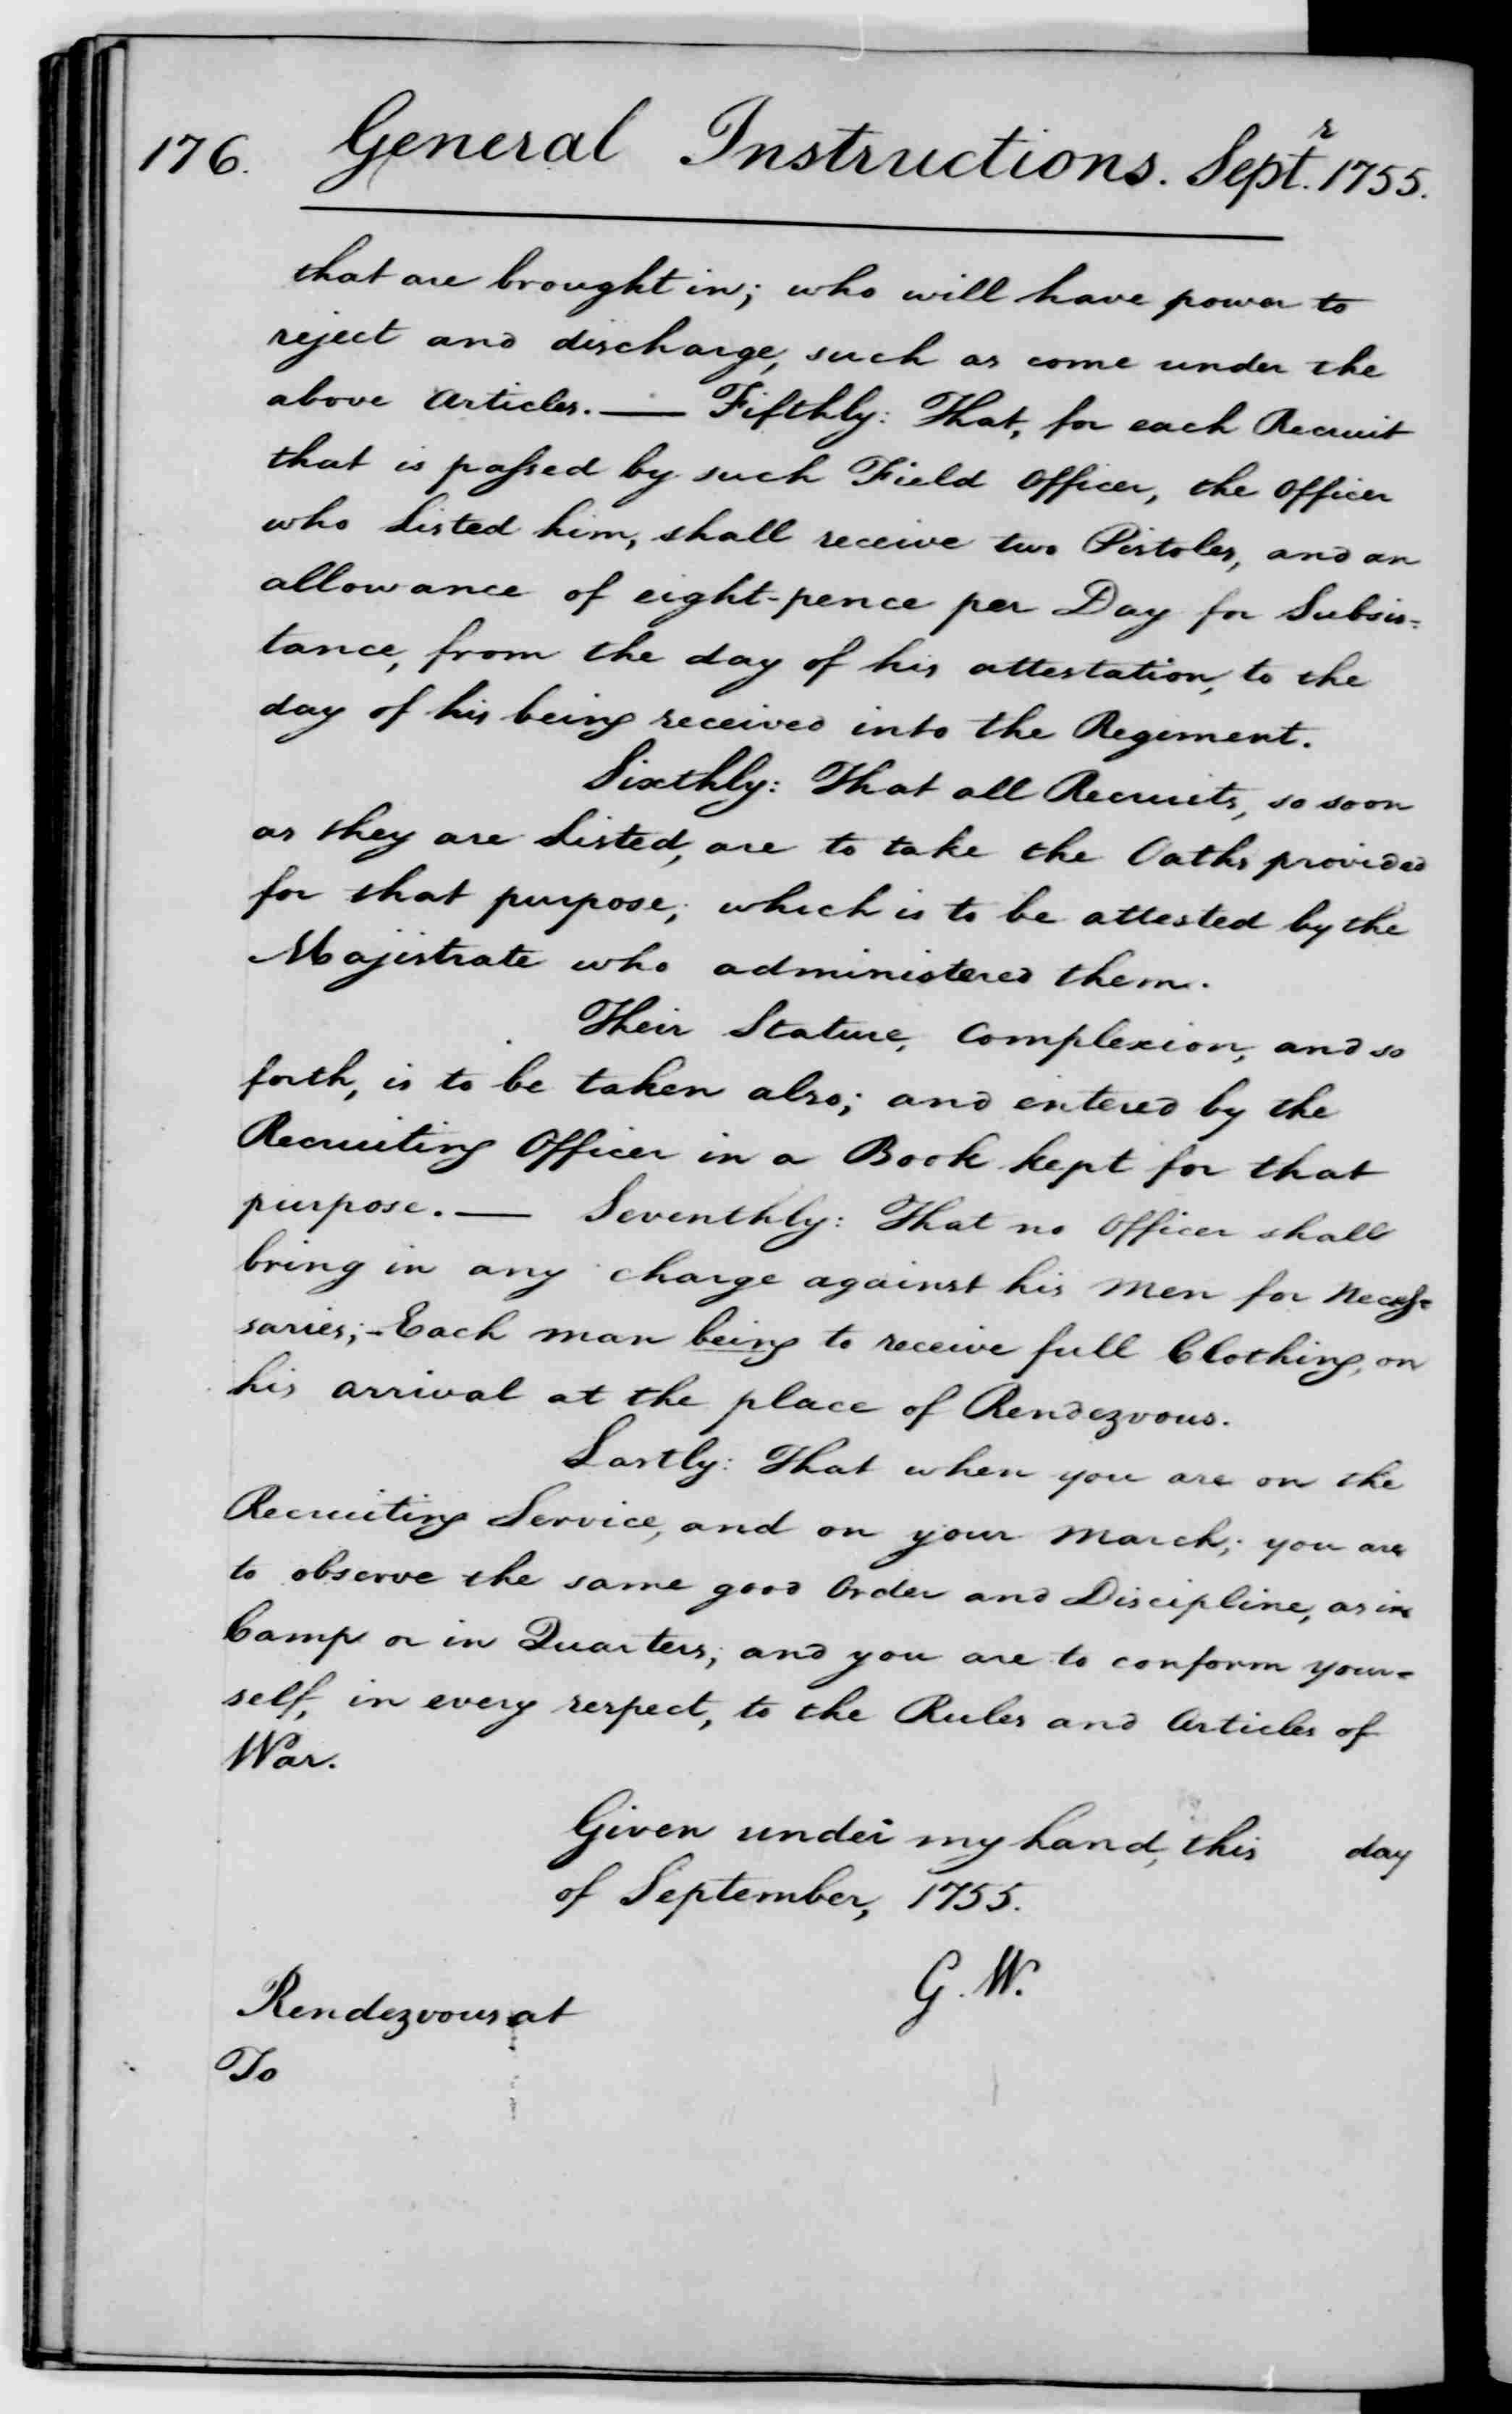 176. General Instructions. Septr. 1755.
that are brought in; who will have power to
reject and discharge, such as come under the
above Articles. — Fifthly: That, for each Recruit
that is passed by such Field Officer, the Officer
who Listed him, shall receive two Pistoles, and an
allowance of eight-pence per Day for Subsis=
tance, from the day of his attestation, to the
day of his being received into the Regiment.
Sixthly: That all Recruits, so soon
as they are Listed, are to take the Oaths provided
for that purpose; which is to be attested by the
Majistrate who administered them.
Their Stature, Complexion, and so
forth, is to be taken also; and entered by the
Recruiting Officer in a Book kept for that
purpose. — Seventhly: That no Officer shall
bring in any charge against his Men for Neces=
saries; - Each man being to receive full Clothing, on
his arrival at the place of Rendezvous.
Lastly: That when you are on the
Recruiting Service, and on your March; you are
to observe the same good Order and Discipline, as in
Camp or in Quarters; and you are to conform your=
self, in every respect, to the Rules and Articles of
War.
Given under my hand, this day
of September, 1755.
G. W.
Rendezvous at
To